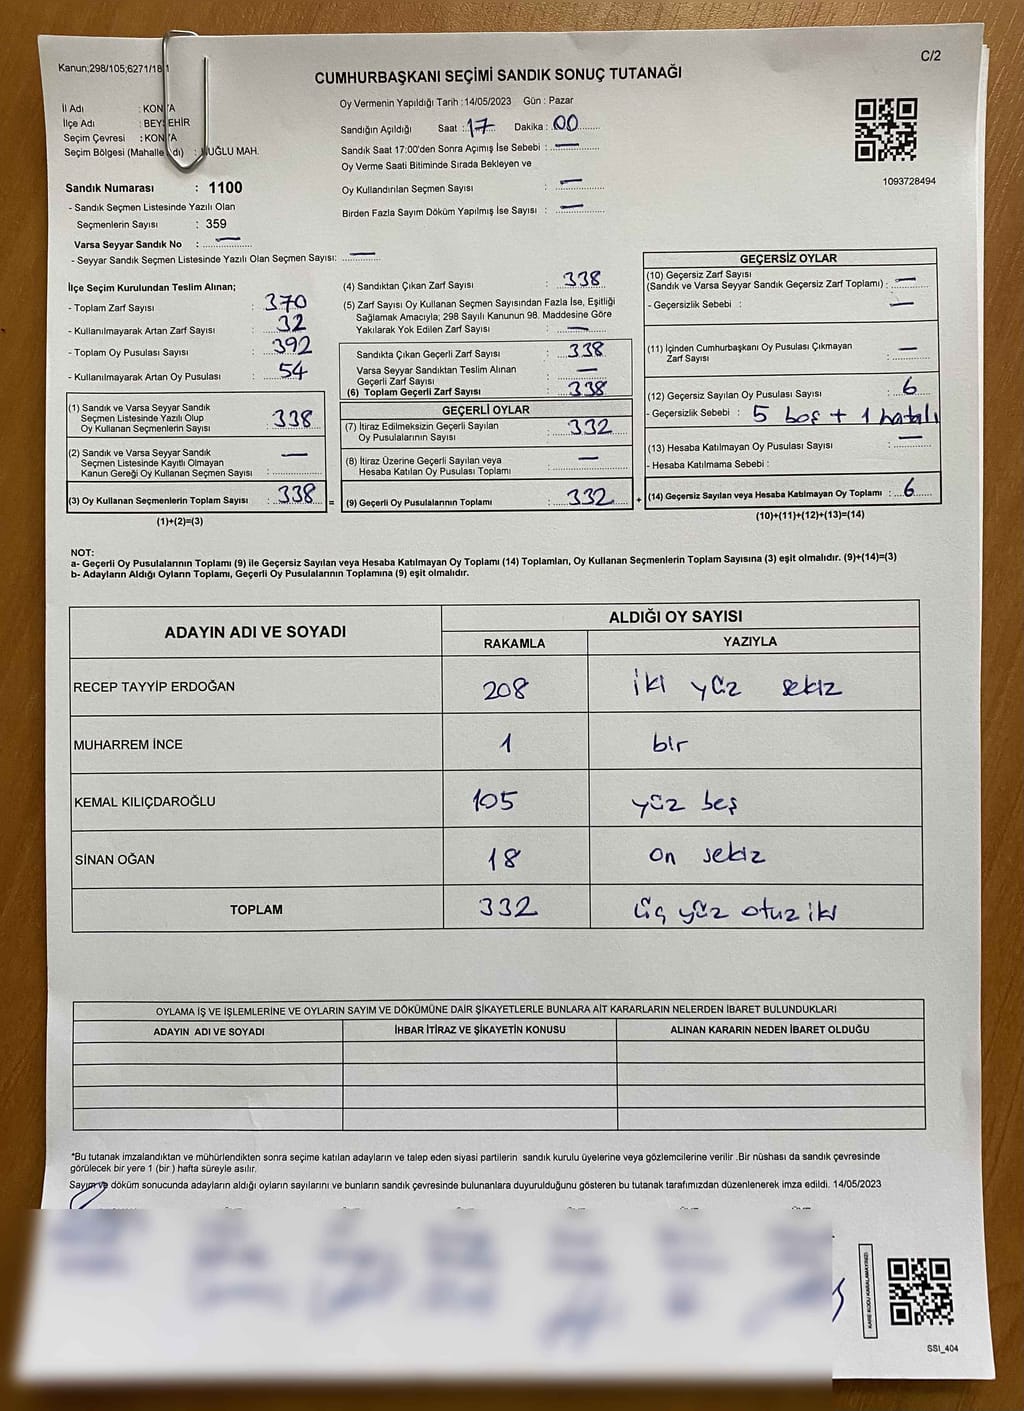 Kanun;298/105;6271/18
C/2
CUMHURBAŞKANI SEÇİMİ SANDIK SONUÇ TUTANAĞI
Oy Vermenin Yapıldığı Tarih : 14/05/2023 Gün : Pazar
İl Adı : KONYA
İlçe Adı : BEYŞEHİR
Seçim Çevresi : KONYA
Seçim Bölgesi (Mahalle Adı) : MAH.
Sandık Numarası : 1100
- Sandık Seçmen Listesinde Yazılı Olan
Seçmenlerin Sayısı : 359
Varsa Seyyar Sandık No : —
- Seyyar Sandık Seçmen Listesinde Yazılı Olan Seçmen Sayısı: —
Sandığın Açıldığı Saat : 17 Dakika : 00
Sandık Saat 17:00'den Sonra Açımış İse Sebebi : —
Oy Verme Saati Bitiminde Sırada Bekleyen ve
Oy Kullandırılan Seçmen Sayısı : —
Birden Fazla Sayım Döküm Yapılmış İse Sayısı : —
1093728494
İlçe Seçim Kurulundan Teslim Alınan;
- Toplam Zarf Sayısı : 370
- Kullanılmayarak Artan Zarf Sayısı : 32
- Toplam Oy Pusulası Sayısı : 392
- Kullanılmayarak Artan Oy Pusulası : 54
(1) Sandık ve Varsa Seyyar Sandık
Seçmen Listesinde Yazılı Olup
Oy Kullanan Seçmenlerin Sayısı : 338
(2) Sandık ve Varsa Seyyar Sandık
Seçmen Listesinde Kayıtlı Olmayan
Kanun Gereği Oy Kullanan Seçmen Sayısı : —
(3) Oy Kullanan Seçmenlerin Toplam Sayısı : 338 =
(1)+(2)=(3)
(4) Sandıktan Çıkan Zarf Sayısı : 338
(5) Zarf Sayısı Oy Kullanan Seçmen Sayısından Fazla İse, Eşitliği
Sağlamak Amacıyla; 298 Sayılı Kanunun 98. Maddesine Göre
Yakılarak Yok Edilen Zarf Sayısı : —
Sandıkta Çıkan Geçerli Zarf Sayısı : 338
Varsa Seyyar Sandıktan Teslim Alınan
Geçerli Zarf Sayısı : —
(6) Toplam Geçerli Zarf Sayısı : 338
GEÇERLİ OYLAR
(7) İtiraz Edilmeksizin Geçerli Sayılan
Oy Pusulalarının Sayısı : 332
(8) İtiraz Üzerine Geçerli Sayılan veya
Hesaba Katılan Oy Pusulası Toplamı : —
(9) Geçerli Oy Pusulalarının Toplamı : 332 +
GEÇERSİZ OYLAR
(10) Geçersiz Zarf Sayısı
(Sandık ve Varsa Seyyar Sandık Geçersiz Zarf Toplamı) : —
- Geçersizlik Sebebi : —
(11) İçinden Cumhurbaşkanı Oy Pusulası Çıkmayan
Zarf Sayısı : —
(12) Geçersiz Sayılan Oy Pusulası Sayısı : 6
- Geçersizlik Sebebi : 5 boş + 1 hatalı
(13) Hesaba Katılmayan Oy Pusulası Sayısı : —
- Hesaba Katılmama Sebebi :
(14) Geçersiz Sayılan veya Hesaba Katılmayan Oy Toplamı : 6
(10)+(11)+(12)+(13)=(14)
NOT:
a- Geçerli Oy Pusulalarının Toplamı (9) ile Geçersiz Sayılan veya Hesaba Katılmayan Oy Toplamı (14) Toplamları, Oy Kullanan Seçmenlerin Toplam Sayısına (3) eşit olmalıdır. (9)+(14)=(3)
b- Adayların Aldığı Oyların Toplamı, Geçerli Oy Pusulalarının Toplamına (9) eşit olmalıdır.
ADAYIN ADI VE SOYADI ALDIĞI OY SAYISI
RAKAMLA YAZIYLA
RECEP TAYYİP ERDOĞAN 208 iki yüz sekiz
MUHARREM İNCE 1 bir
KEMAL KILIÇDAROĞLU 105 yüz beş
SİNAN OĞAN 18 on sekiz
TOPLAM 332 üç yüz otuz iki
OYLAMA İŞ VE İŞLEMLERİNE VE OYLARIN SAYIM VE DÖKÜMÜNE DAİR ŞİKAYETLERLE BUNLARA AİT KARARLARIN NELERDEN İBARET BULUNDUKLARI
ADAYIN ADI VE SOYADI İHBAR İTİRAZ VE ŞİKAYETİN KONUSU ALINAN KARARIN NEDEN İBARET OLDUĞU
*Bu tutanak imzalandıktan ve mühürlendikten sonra seçime katılan adayların ve talep eden siyasi partilerin sandık kurulu üyelerine veya gözlemcilerine verilir .Bir nüshası da sandık çevresinde
görülecek bir yere 1 (bir ) hafta süreyle asılır.
Sayım ve döküm sonucunda adayların aldığı oyların sayılarını ve bunların sandık çevresinde bulunanlara duyurulduğunu gösteren bu tutanak tarafımızdan düzenlenerek imza edildi. 14/05/2023
KARE KODU KARALAMAYINIZ!
SSI_404